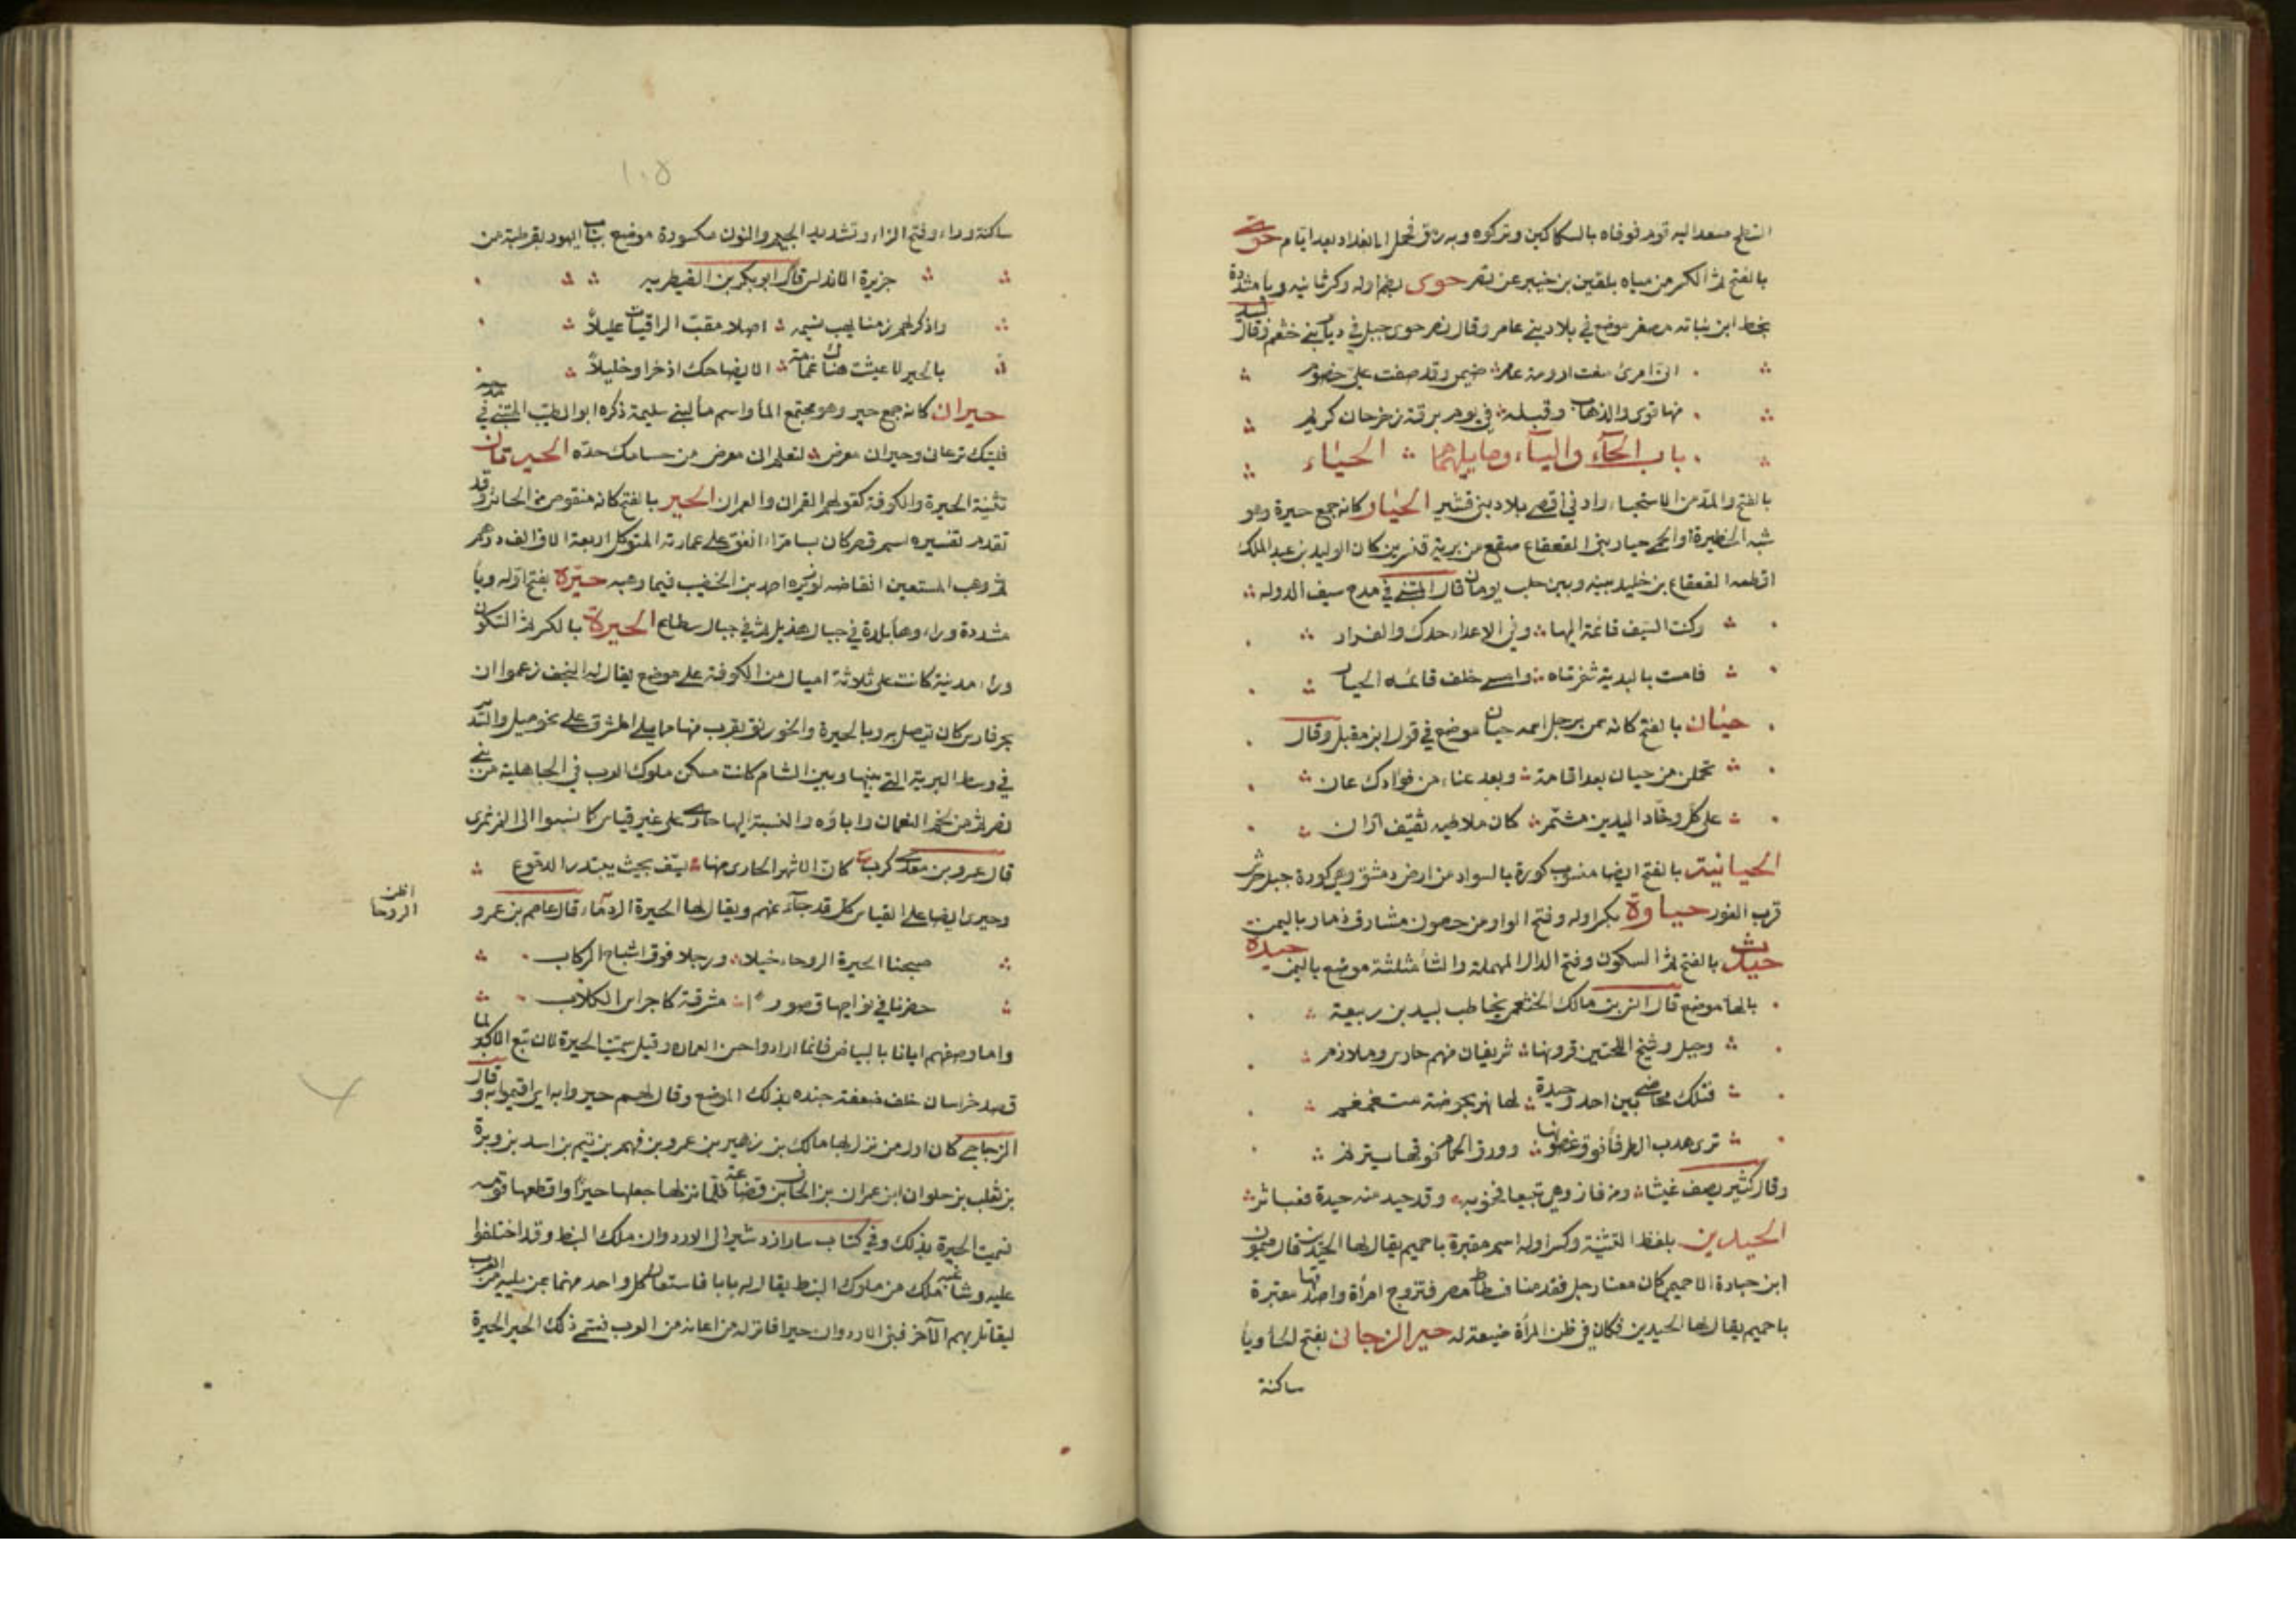 السلم فصعد اليه قوم فوفاه بالسكاكين وتركوه وبه رمق فحمل الى بغداد بعد ايام حوي
بالفتح ثم الكسر من مياه بلقين بن خيبر عن نصر حوى بضم اوله وكسر ثانيه ويا مشددة
بخط ابن نباته مصغر موضع في بلاد بني عامر وقال نصر حوى جبل في ديار بني خثعم وقال لبيد
انى امرئ منعت ارومة عامر ضيمى وقد حنقت على خصوم
منها حوى والذهاب وقبله في يوم ببرقة رحرحان كريم
باب الحآء واليآء وما يليهما الحياء
بالفتح والمد من الاستحياء واد في اقصى بلاد بني قشير الحيار كانه جمع حيرة وهو
شبه الحظيرة او الحمى حيار بني القعقاع صقع من برية قنسرين كان الوليد بن عبد الملك
اقطعه القعقاع بن خليد بينه وبين حلب يومان قال المتنبي في مدح سيف الدوله
وكنت السيف قائمه اليها وفي الاعداء حدك والغرار
فامست بالبدية شفرتاه وامسى خلف قائمه الحيار
حيان بالفتح كانه سمي برجل اسمه حيان موضع في قول ابن مقبل وقال
تحملن من حيان بعد اقامة وبعد عناء من فؤادك عان
على كل وخاد اليدين مشمر كان ملاطيه ثقيف اران
الحيانية بالفتح ايضا منسوب كورة بالسواد من ارض دمشق وهي كورة جبل جرش
قرب الغور حياوة بكسر اوله وفتح الواو من حصون مشارف ذمار باليمن
حيدث بالفتح ثم السكون وفتح الدال المهملة والثا مثلثة موضع باليمن حيدة
بالها موضع قال انس بن مالك الخثعمي يخاطب لبيد بن ربيعة
وجيل وشيخ اللحيتين قرونها فريقان منهم حاسر وملازم
فتلك مخاضى بين احد وحيدة لها نهر بحوضه متغمغم
ترى هدب الطرفا فوق غصونها وورق الحمام فوقها يترنم
وقال كثير يصف غيثا ومر فاروى ينبعا فجنوبه وقد حيد منه حيدة فعباثر
الحيدين بلفظ التثنية وكسر اوله اسم مقبرة باخميم يقال لها الحيدين قال ميمون
ابن حبارة الاخميمي كان معنا رجل فقدمنا فسطاط مصر فتزوج امرأة واصدقها مقبرة
باخميم يقال لها الحيدين فكان في ظن المرأة ضيعة له حير الزجالى بفتح الحا ويا
ساكنة
١٠٥
ساكنة وراء وفتح الزاء وتشديد الجيم والنون مكسورة موضع بباب اليهود بقرطبة من
جزيرة الاندلس قال ابو بكر بن القبطرنيه
واذكر لهم زمنا يهب نسيمه اصلا مقب الراقيات عليلا
بالحير لا عيشت هناك غمامة الا يضاحك اذخرا وخليلا
حيران كانه جمع حير وهو مجتمع الماء واسم ماء لبني سليمة ذكره ابو الطيب المتنبي في
فليتك ترعانى وحيران معرض لتعلم انى معرض من حسامك حده الحيرتان
تثنية الحيرة والكوفة كقولهم القمران والعمران الحير بالفتح كانه منقوص من الحائر وقد
تقدم تفسيره اسم قصر كان بسامراء انفق على عمارته المتوكل اربعة الاف الف درهم
ثم وهب المستعين انقاضه لوزيره احمد بن الخصيب فيما وهبه حيرة بفتح اوله ويا
مشددة وراء وها بلدة في جبال هذيل ثم في جبال سطاع الحيرة بالكسر ثم السكون
وراء مدينة كانت على ثلاثة اميال من الكوفة على موضع يقال له النجف زعموا ان
بحر فارس كان يتصل به وبالحيرة والخورنق بقرب منها مما يلي المشرق على نحو ميل والسدير
في وسط البرية التي بينها وبين الشام كانت مسكن ملوك العرب في الجاهلية من بني
نصر ثم من لخم النعمان واباؤه والنسبة اليها حارى على غير قياس كما نسبوا الى النمر نمرى
قال عمرو بن معدى كرب كان الاثمد الحارى منها يسف بحيث يبتدر الدموع
وحيرى ايضا على القياس كل قد جاء عنهم ويقال لها الحيرة الدوماء قال عاصم بن عمرو
اظن
الروحا
صبحنا الحيرة الروحاء خيلا ورجلا فوق اثباج الركاب
حضرنا في نواحيها قصورا مشرقة كاجراس الكلاب
واما وصفهم اياها بالبياض فانما ارادوا حسن العمارة وقيل سميت الحيرة لان تبع الاكبر لما
قصد خراسان خلف ضعفة جنده بذلك الموضع وقال لهم حيروا به اى اقيموا به وقال
الزجاجى كان اول من نزل بها مالك بن زهير بن عمرو بن فهم بن تيم بن اسد بن وبرة
بن ثعلب بن حلوان ابن عمران بن الحاف بن قضاعة فلما نزلها جعلها حيرا واقطعها قومه
فسميت الحيرة بذلك وفي كتاب سار ازدشير الى الاردوان ملك النبط وقد اختلفوا
عليه وشاغبه ملك من ملوك النبط يقال له بابا فاستعان كل واحد منهما بمن يليه من العرب
ليقاتل بهم الآخر فبنى الاردوان حيرا فانزله من اعانه من العرب فسمى ذلك الحير الحيرة